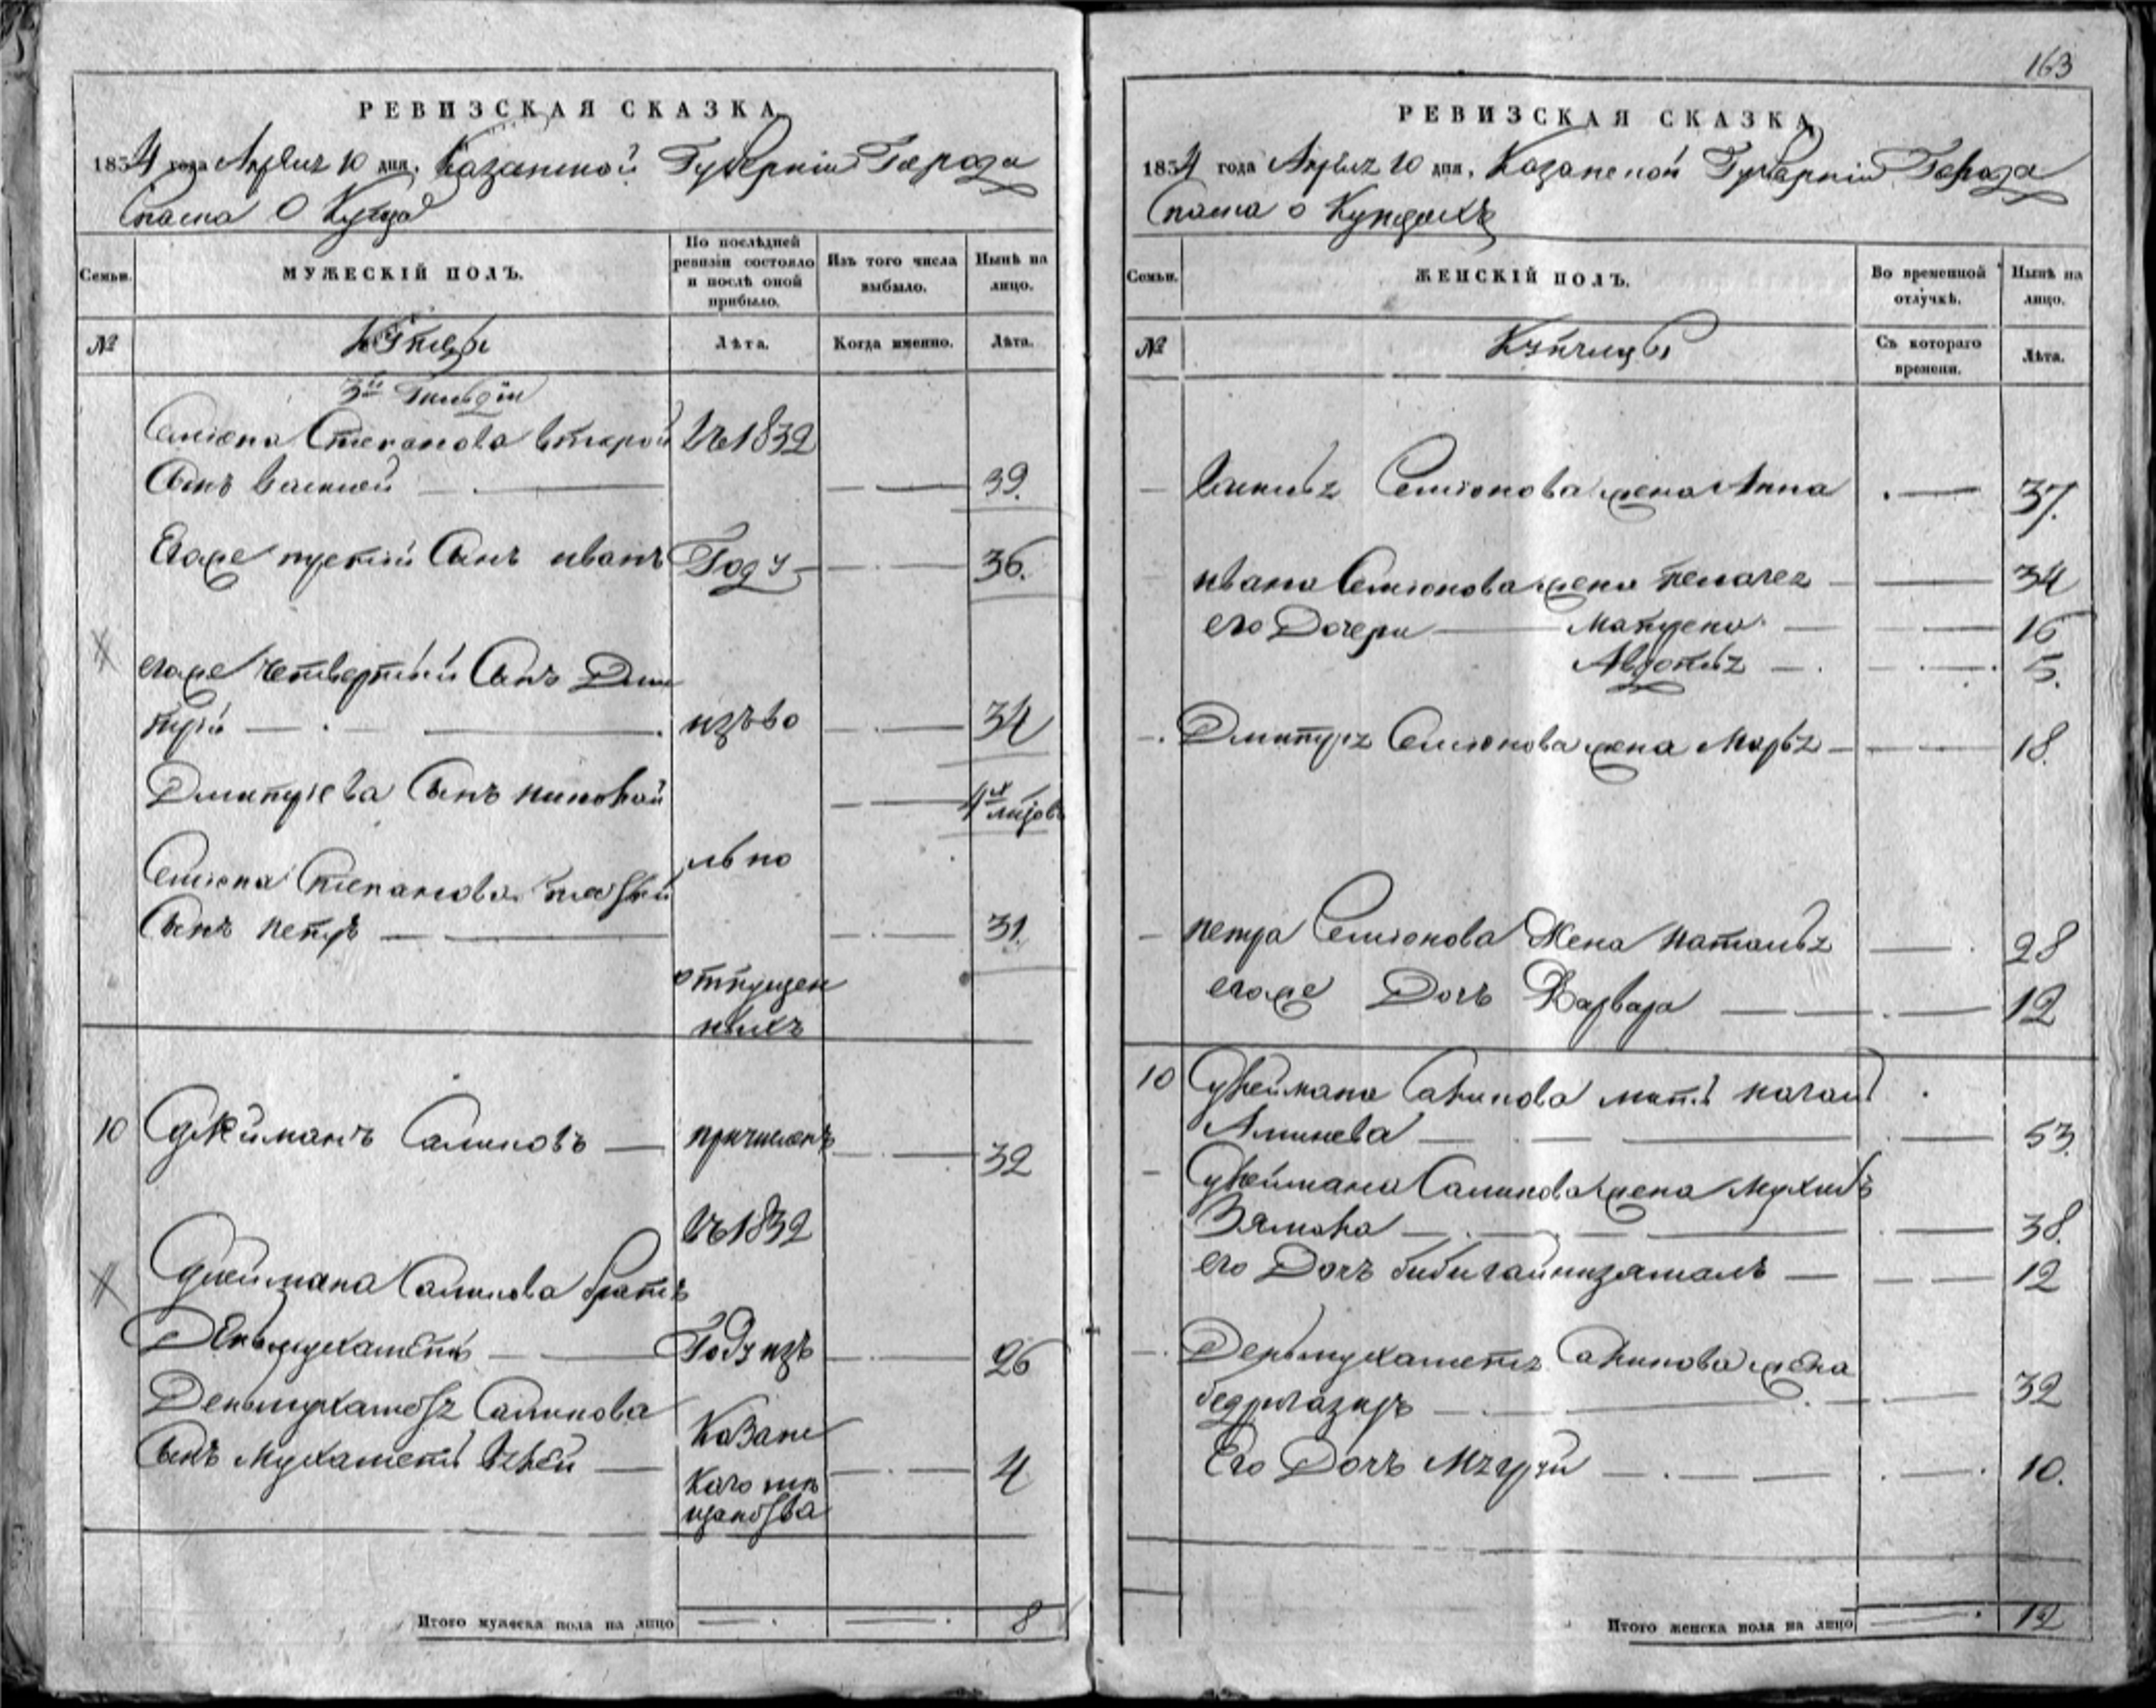 РЕВИЗСКАЯ СКАЗКА
1834 года Апреля 10 дня, Казанской Губернии Города
Спаска О Купца
Семьи.
МУЖЕСКІЙ ПОЛЪ.
По послѣдней ревизіи состояло и послѣ оной прибыло.
Изъ того числа выбыло.
Нынѣ на лицо.
№
Купцы
Лѣта.
Когда именно.
Лѣта.
3й Гильдіи
Семіона Степанова второй
въ 1832
Сынъ Василей
39.
Егоже третій Сынъ иванъ
Году
36.
егоже четвертый Сынъ Дми
трій
изъ во
34
Дмитріева Сынъ николай
4х
льно
Семіона Степанова
Сынъ петръ
31.
отпущен
ныхъ
10
Салиховъ
причисленъ
32
въ 1832
Салихова братъ
Деньмухаметъ
Году изъ
26
Деньмухаметя Салихова
Казанс
Сынъ Мухаметъ
4
каго мѣ
щанства
Итого мужеска пола на лицо
8
163
РЕВИЗСКАЯ СКАЗКА
1834 года Апреля 10 дня, Казанской Губерніи Города
Спаска о Купцахъ
Семьи.
ЖЕНСКІЙ ПОЛЪ.
Во временной отлучкѣ.
Нынѣ на лицо.
№
Купчихы
Съ котораго времени.
Лѣта.
Василья Семіонова жена Анна
37.
ивана Семіонова жена пелагея
34
его Дочери
Матрена
16
Авдотья
5.
Дмитрія Семіонова жена Марья
18.
петра Семіонова Жена Наталья
28
егоже Дочь Варвара
12
10
Сулеймана Салихова мать
Аминева
53.
Сулеймана Салихова жена
38.
его Дочь
12
Деньмухаметя Салихова жена
32
Его Дочь
10.
Итого женска пола на лицо
12